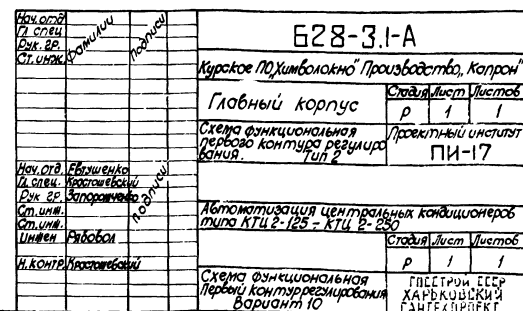 Нач. отд
Гл спец
Рук. гр.
Ст. инж.
фамилии
подписи
Б28-3.1-А
Курское ПО „Химволокно" Производство „Капрон"
Главный корпус
Стадия Лист Листов
Р 1 1
Схема функциональная
первого контура регулиро
вания. Тип 2
Проектный институт
ПИ-17
Нач. отд. Евтушенко
Гл. спец. Красташевский
Рук гр. Запорожченко
Ст. инж.
Ст. инж.
Инжен Рябовол
Н. контр. Красташевский
подписи
Автоматизация центральных кондиционеров
типа КТЦ 2-125 - КТЦ 2-250
Стадия Лист Листов
Р 1 1
Схема функциональная
Первый контур регулирования
Вариант 10
ГОССТРОЙ СССР
ХАРЬКОВСКИЙ
САНТЕХПРОЕКТ